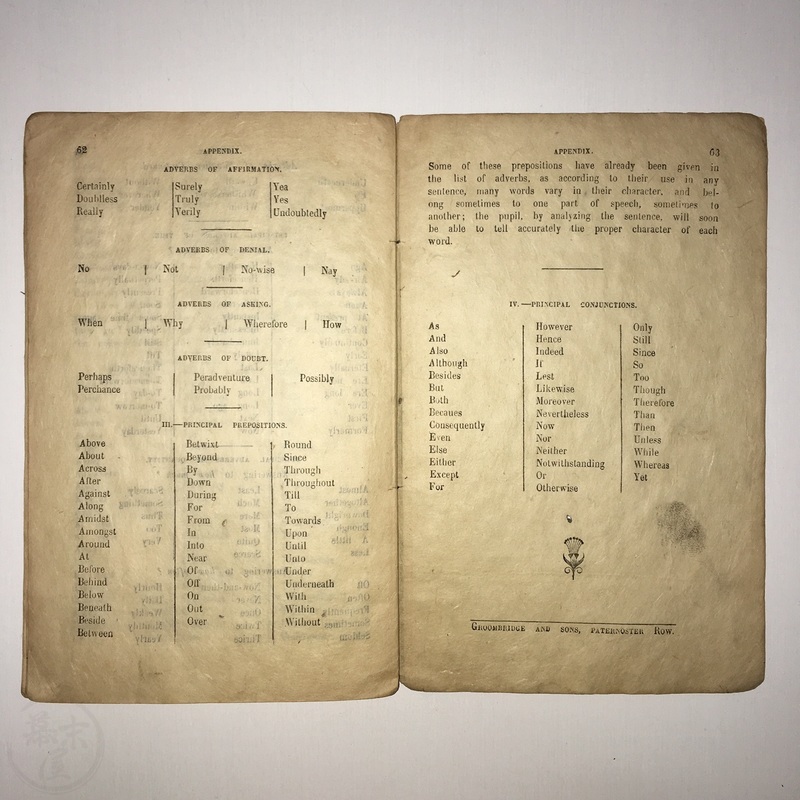 62
APPENDIX.
ADVERBS OF AFFIRMATION.
Certainly Surely Yea
Doubtless Truly Yes
Really Verily Undoubtedly
ADVERBS OF DENIAL.
No Not No-wise Nay
ADVERBS OF ASKING.
When Why Wherefore How
ADVERBS OF DOUBT.
Perhaps Peradventure Possibly
Perchance Probably
III.—PRINCIPAL PREPOSITIONS.
Above Betwixt Round
About Beyond Since
Across By Through
After Down Throughout
Against During Till
Along For To
Amidst From Towards
Amongst In Upon
Around Into Until
At Near Unto
Before Of Under
Behind Off Underneath
Below On With
Beneath Out Within
Beside Over Without
Between
APPENDIX.
63
Some of these prepositions have already been given in
the list of adverbs, as according to their use in any
sentence, many words vary in their character, and bel-
ong sometimes to one part of speech, sometimes to
another; the pupil, by analyzing the sentence, will soon
be able to tell accurately the proper character of each
word.
IV.—PRINCIPAL CONJUNCTIONS.
As However Only
And Hence Still
Also Indeed Since
Although If So
Besides Lest Too
But Likewise Though
Both Moreover Therefore
Becaues Nevertheless Than
Consequently Now Then
Even Nor Unless
Else Neither While
Either Notwithstanding Whereas
Except Or Yet
For Otherwise
GROOMBRIDGE AND SONS, PATERNOSTER ROW.
幕末屋